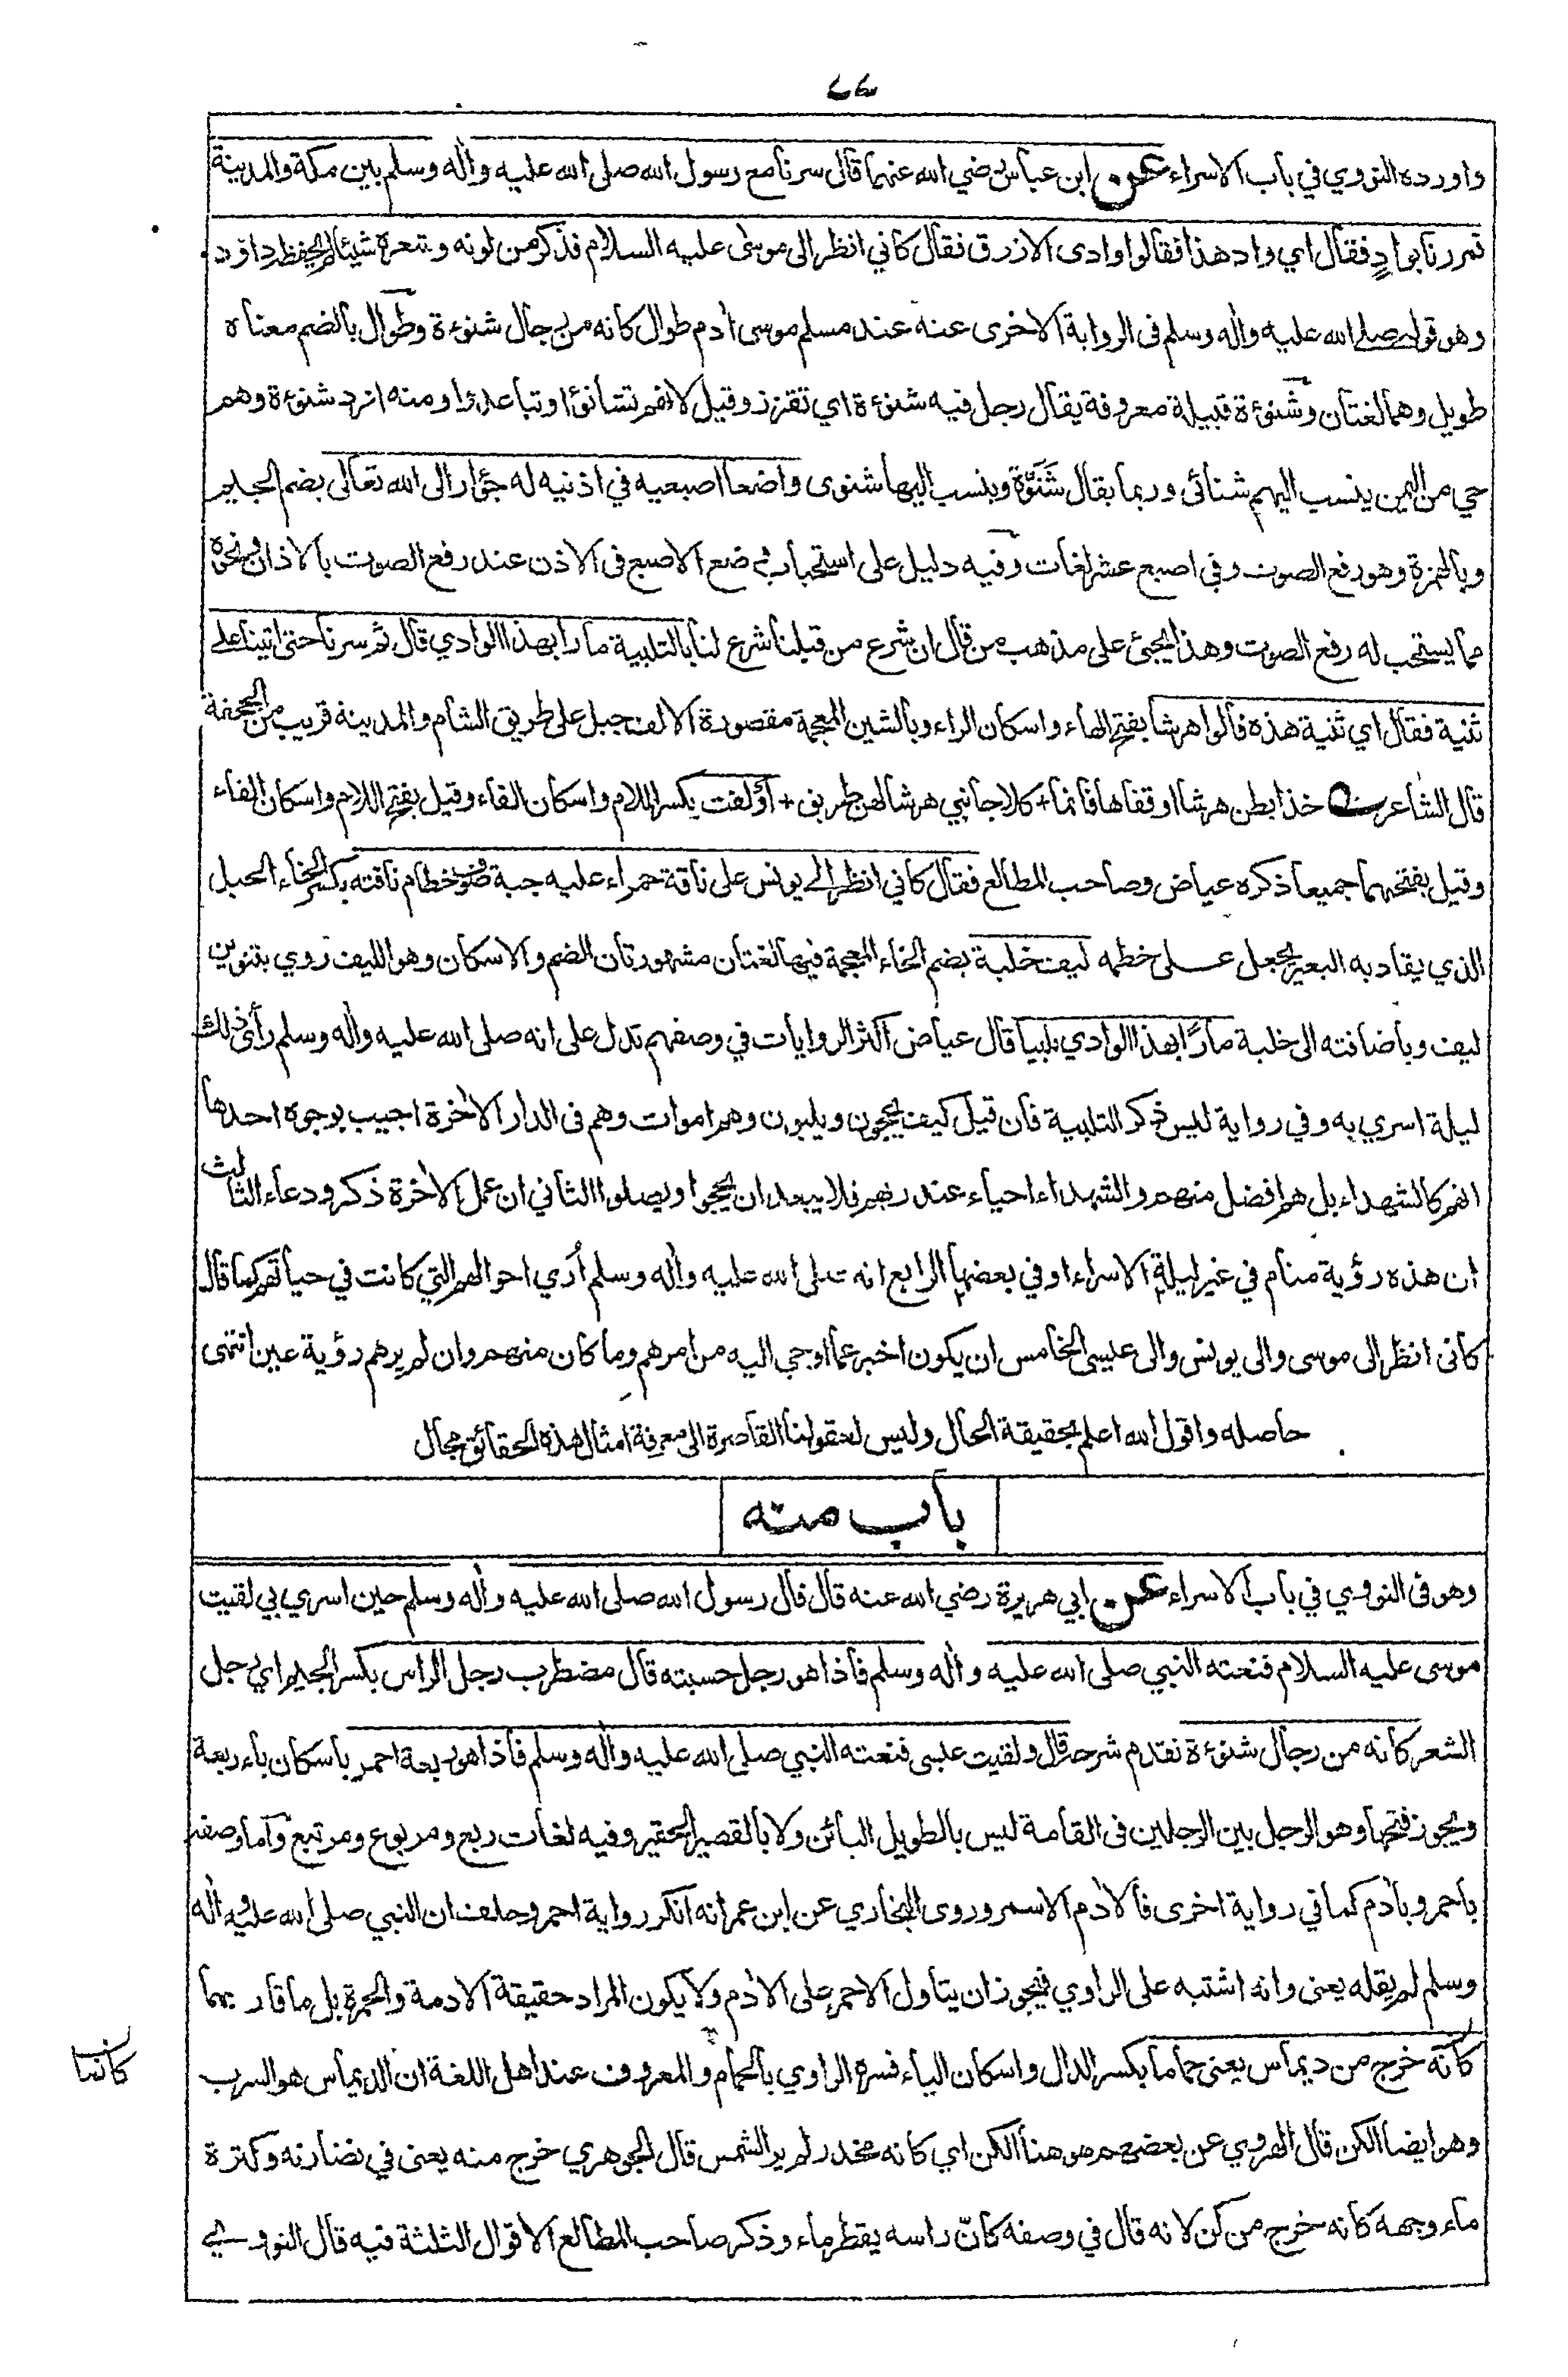 ٧٧
واورده النووي في باب الاسراء عن ابن عباس رضي الله عنهما قال سرنا مع رسول الله صلى الله عليه واٰله وسلم بين مكة والمدينة
فمررنا بوادٍ فقال اي واد هذا فقالوا وادى الازرق فقال كاني انظر الى موسٰى عليه السلام فذكر من لونه وشعره شيئا لم يحفظه داؤد
وهو قوله صلى الله عليه واٰله وسلم فى الرواية الاخرى عنه عند مسلم موسى اٰدم طوال كانه من رجال شنوءة وطوال بالضم معناه
طويل وهما لغتان وشنوءة قبيلة معروفة يقال رجل فيه شنوءة اي تقزز وقيل لانهم تشانؤا وتباعدوا ومنه ازد شنوءة وهم
حي من اليمن ينسب اليهم شنائى وربما يقال شَنَوَّة وينسب اليها شنوى واضعا اصبعيه في اذنيه له جؤار الى الله تعالى بضم الجيم
وبالهمزة وهو رفع الصوت وفي اصبع عشر لغات وفيه دليل على استحباب وضع الاصبع فى الاذن عند رفع الصوت بالاذان ونحوه
مما يستحب له رفع الصوت وهذا يجئ على مذهب من قال ان شرع من قبلنا شرع لنا بالتلبية مارا بهذا الوادي قال ثم سرنا حتى اتينا على
ثنية فقال اي ثنية هذه قالوا هرشا بفتح الهاء واسكان الراء وبالشين المعجمة مقصورة الالف جبل على طريق الشام والمدينة قريب من الجحفة
قال الشاعر خذا بطن هرشا او قفاها فانما + كلا جانبي هرشا لهن طريق + او لفت بكسر اللام واسكان الفاء وقيل بفتح اللام واسكان الفاء
وقيل بفتحهما جميعا ذكره عياض وصاحب المطالع فقال كاني انظر الى يونس على ناقة حمراء عليه جبة صوف خطام ناقته بكسر الخاء الحبل
الذي يقاد به البعير يجعل على خطمه ليف خلبة بضم الخاء المعجمة فيها لغتان مشهورتان الضم والاسكان وهو الليف روي بتنوين
ليف وباضافته الى خلبة مارًا بهذا الوادي ملبيا قال عياض اكثر الروايات في وصفهم تدل على انه صلى الله عليه واٰله وسلم رأى ذلك
ليلة اسري به وفي رواية ليس ذكر التلبية فان قيل كيف يحجون ويلبون وهم اموات وهم فى الدار الاٰخرة اجيب بوجوه احدها
انهم كالشهداء بل هم افضل منهم والشهداء احياء عند ربهم فلا يبعد ان يحجوا ويصلوا الثاني ان عمل الاٰخرة ذكر ودعاء الثالث
ان هذه رؤية منام في غير ليلة الاسراء او في بعضها الرابع انه صلى الله عليه واٰله وسلم اُري احوالهم التي كانت في حياتهم كما قال
كانى انظر الى موسى والى يونس والى عيسى الخامس ان يكون اخبر عما اوحي اليه من امرهم وما كان منهم وان لم يرهم رؤية عين انتهى
حاصله واقول الله اعلم بحقيقة الحال وليس لعقولنا القاصرة الى معرفة امثال هذه الحقائق مجال
باب منه
وهو فى النووي في باب الاسراء عن ابي هريرة رضي الله عنه قال قال رسول الله صلى الله عليه واٰله وسلم حين اسري بي لقيت
موسى عليه السلام فنعته النبي صلى الله عليه واٰله وسلم فاذا هو رجل حسبته قال مضطرب رجل الراس بكسر الجيم اي رجل
الشعر كانه من رجال شنوءة تقدم شرحه قال ولقيت عيسى فنعته النبي صلى الله عليه واٰله وسلم فاذا هو ربعة احمر باسكان باء ربعة
ويجوز فتحها وهو الرجل بين الرجلين فى القامة ليس بالطويل البائن ولا بالقصير الحقير وفيه لغات ربع ومربوع ومرتبع واما وصفه
باحمر وباٰدم كما في رواية اخرى فالاٰدم الاسمر وروى البخاري عن ابن عمر انه انكر رواية احمر وحلف ان النبي صلى الله عليه واٰله
وسلم لم يقله يعنى وانه اشتبه على الراوي فيجوز ان يتاول الاحمر على الاٰدم ولا يكون المراد حقيقة الادمة والحمرة بل ما قاربهما
كانه خرج من ديماس يعنى حماما بكسر الدال واسكان الياء فسره الراوي بالحمام والمعروف عند اهل اللغة ان الديماس هو السرب
كانما
وهو ايضا الكن قال الهروي عن بعضهم هو هنا الكن اي كانه مخدر لم ير الشمس قال الجوهري خرج منه يعنى في نضارته وكثرة
ماء وجهه كانه خرج من كن لانه قال في وصفه كانّ راسه يقطر ماء وذكر صاحب المطالع الاقوال الثلثة فيه قال النووي